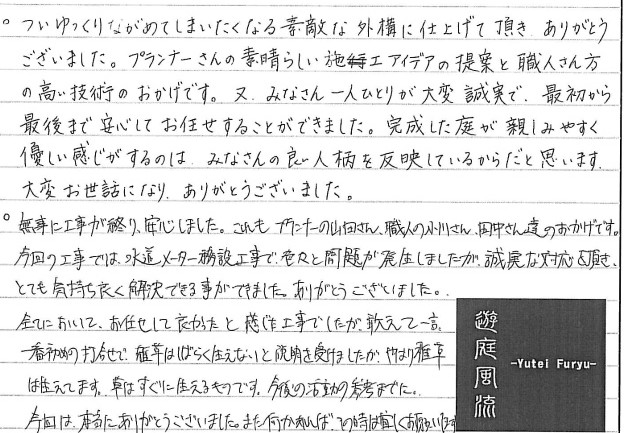 。ついゆっくりながめてしまいたくなる素敵な外構に仕上げて頂き ありがとう
ございました。プランナーさんの素晴らしい施工アイデアの提案と職人さん方
の高い技術のおかげです。又、みなさん一人ひとりが大変誠実で、最初から
最後まで安心してお任せすることができました。完成した庭が親しみやすく
優しい感じがするのは、みなさんの良い人柄を反映しているからだと思います。
大変お世話になり、ありがとうございました。
。無事に工事が終り、安心しました。これも プランナーの山田さん、職人の小川さん、田中さん達のおかげです。
今回の工事では、水道メーター移設工事で色々と問題が発生しましたが、誠実な対応を頂き、
とても気持ち良く解決できる事ができました。ありがとうございました。
全てにおいて、お任せして良かったと感じた工事でしたが、敢えて一言。
一番初めの打合せで、雑草はしばらく生えないと説明を受けましたが、やはり雑草
は生えてます。草はすぐに生えるものです。今後の活動の参考までに。
今回は、本当にありがとうございました。また何かあれば、その時は宜しくお願いします
遊庭風流
-Yutei Furyu-